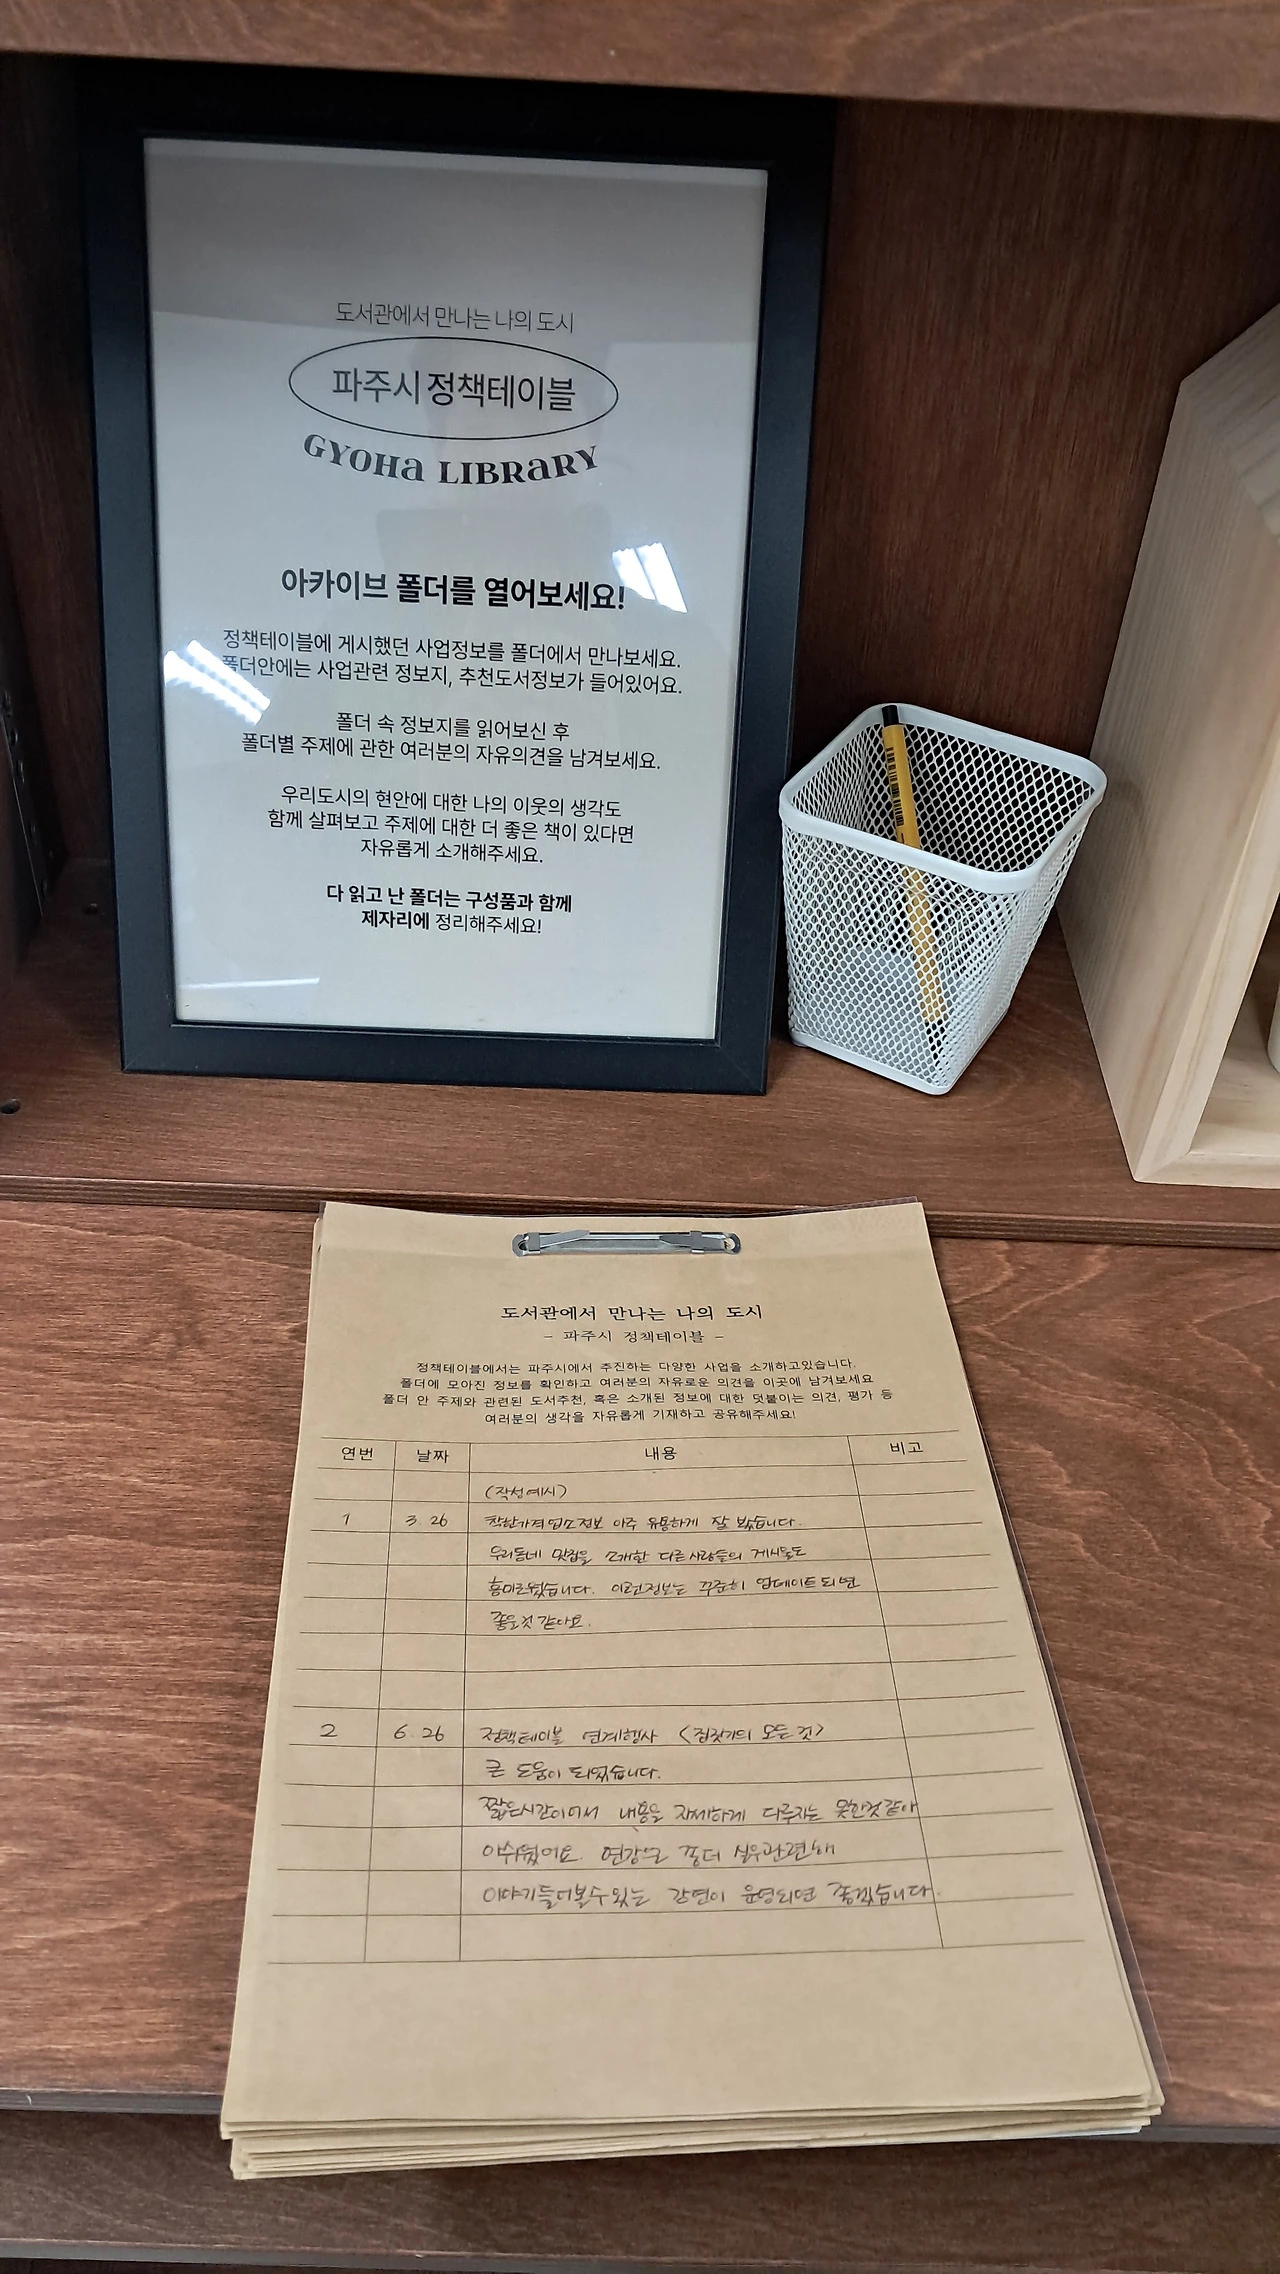 도서관에서 만나는 나의 도시
파주시 정책테이블
GYOHa LIBRaRY
아카이브 폴더를 열어보세요!
정책테이블에 게시했던 사업정보를 폴더에서 만나보세요.
폴더안에는 사업관련 정보지, 추천도서정보가 들어있어요.
폴더 속 정보지를 읽어보신 후
폴더별 주제에 관한 여러분의 자유의견을 남겨보세요.
우리도시의 현안에 대한 나의 이웃의 생각도
함께 살펴보고 주제에 대한 더 좋은 책이 있다면
자유롭게 소개해주세요.
다 읽고 난 폴더는 구성품과 함께
제자리에 정리해주세요!
도서관에서 만나는 나의 도시
- 파주시 정책테이블 -
정책테이블에서는 파주시에서 추진하는 다양한 사업을 소개하고있습니다.
폴더에 모아진 정보를 확인하고 여러분의 자유로운 의견을 이곳에 남겨보세요
폴더 안 주제와 관련된 도서추천, 혹은 소개된 정보에 대한 덧붙이는 의견, 평가 등
여러분의 생각을 자유롭게 기재하고 공유해주세요!
연번 날짜 내용 비고
(작성예시)
1 3.26 착한가격업소정보 아주 유용하게 잘 봤습니다.
우리동네 맛집을 소개한 다른사람들의 게시물도
흥미로웠습니다. 이런정보는 꾸준히 업데이트되면
좋을것 같아요.
2 6.26 정책테이블 연계행사 <집짓기의 모든것>
큰 도움이 되었습니다.
짧은시간이어서 내용을 자세하게 다루지는 못한것같아
아쉬웠어요. 좀더 실무관련해
이야기들어볼수있는 강연이 운영되면 좋겠습니다.